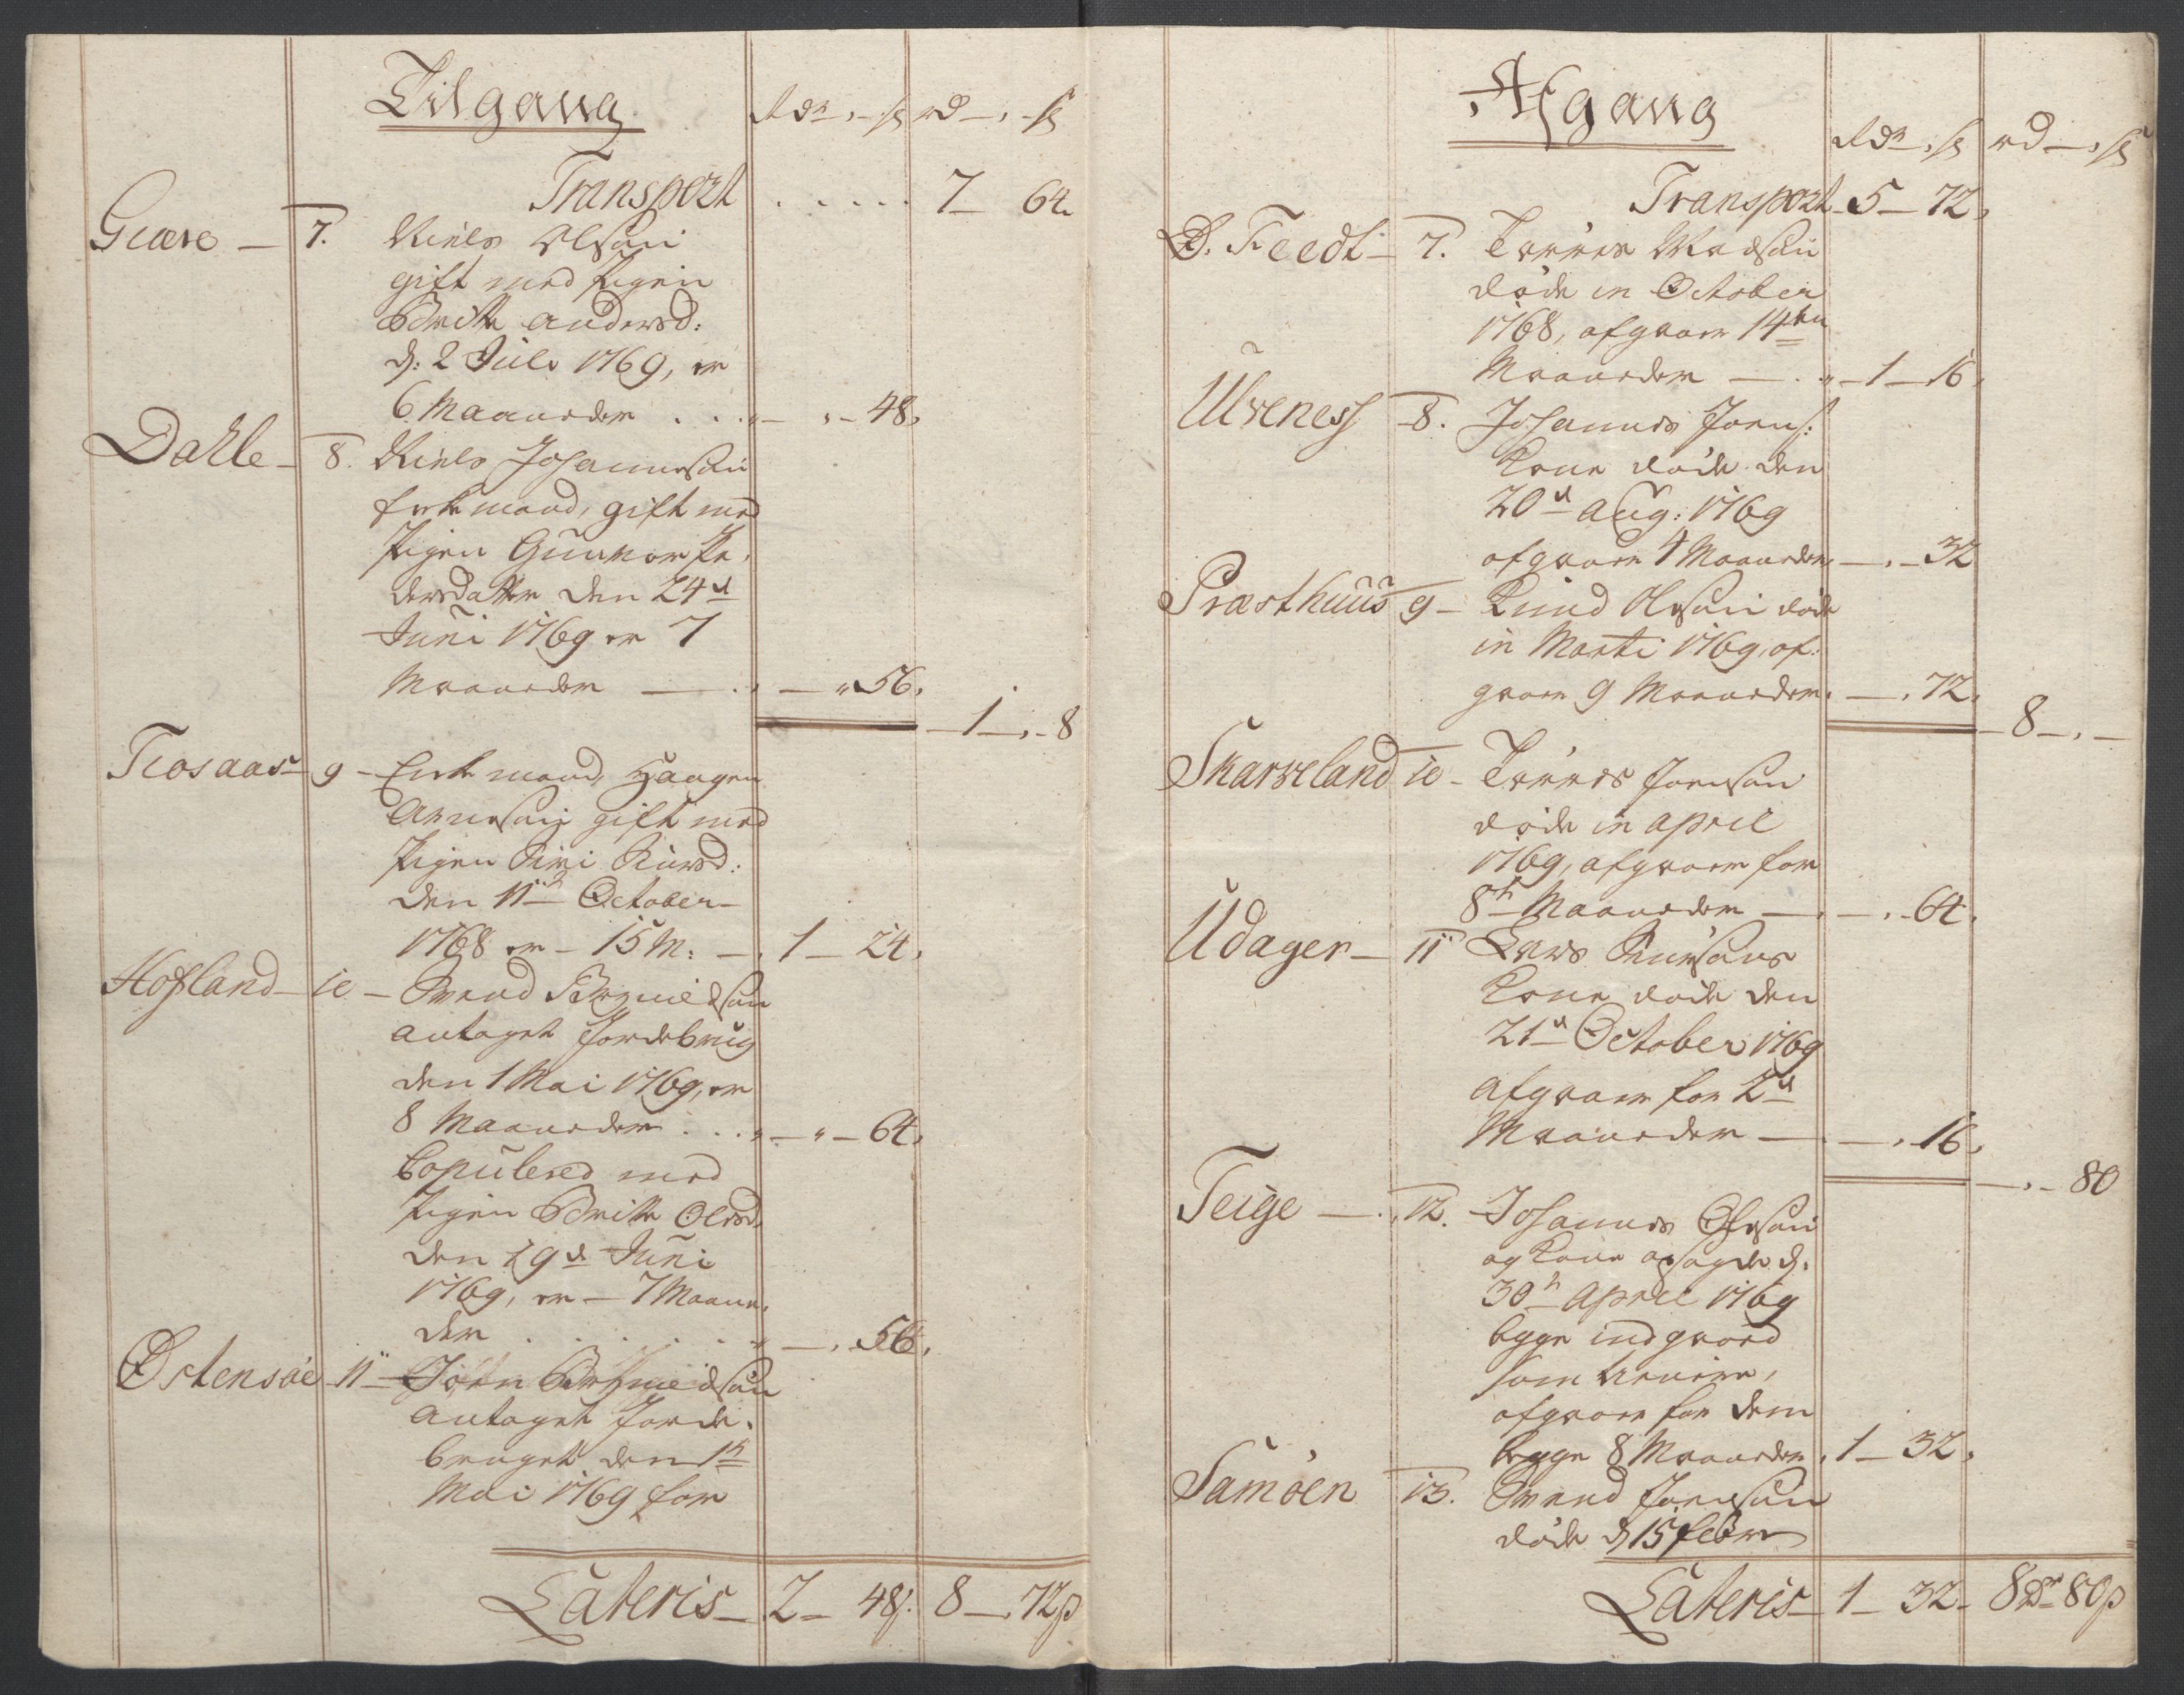 Tilgang
Rdr, ß rd, ß
Transport . . . . . 7 64.
Giære 7. Niels Olsøn
gift med Pigen
Britte Andersd:
d: 2 Juli 1769, er
6 Maaneder . . . „ „ 48.
Dahle 8. Niels Johannesøn
Enkemand, gift med
Pigen Gunvor Pe-
dersdatter den 24d
Juni 1769 er 7
Maaneder „ 56.
1 „ 8
Tiosaas 9 Enkemand, Haagen
Arnesøn gift med
Pigen Siri Siursd:
den 11th October
1768 er 15 M: 1 24.
Hofland 10 Svend Brynildsøn
antaget Jordebrug
den 1 Mai 1769, er
8 Maaneder . . . „ „ 64.
Copulered med
Pigen Britte Olesd.
den 29d Juni
1769, er 7 Maane-
der . . . . . . „ 56.
Østensøe 11 Jørn Brynildsøn
antaget Jorde-
bruget den 1th
Mai 1769 for
Lateris 2 48ß. 8 72ß
Afgang
Rdr, ß rd, ß
Transport 5 72.
D. Feedt 7. Torres Madsøn
døde in October
1768, afgaaer 14ten
Maaneder „ 1 16.
Ulveness 8. Johannes Joens:
Kone døde den
20d Aug: 1769
afgaaer 4 Maaneder 32
Præsthuus 9 Knud Olsøn døde
in Marti 1769, af-
gaaer 9 Maaneder. 72.
8 „
Skarveland 10 Torres Joensøn
døde in April
1769, afgaaer for
8th Maaneder 64.
Udager 11 Lars Knusøns
Kone døde den
21d October 1769
Afgaaer for 2d
Maaneder 16.
80
Teige 12. Johannes Olsøn
og Kone opsagde d.
30th April 1769
begge
som
afgaaer for dem
begge 8 Maaneder. 1 32.
Samøen 13. Svend Joensøn
døde d 15 Febr
Lateris 1 32 8 Dr 80ß